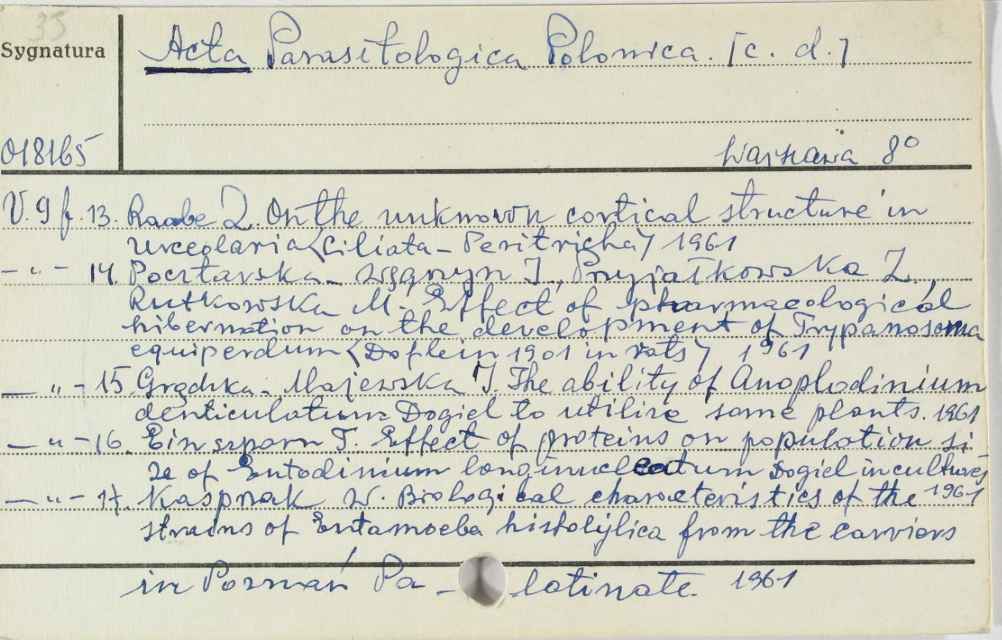 35
Sygnatura
Acta Parasitologica Polonica. [c. d.]
018165
Warszawa 8°
V. 9 f. 13. Raabe Z. On the unknown cortical structure in
Urceolaria <Ciliata - Peritricha> 1961
— " — 14. Pocztarska - Węgrzyn J., Przyjałkowska Z.,
Rutkowska M. Effect of pharmacological
hibernation on the development of Trypanosoma
equiperdum <Doflein 1901 in rats> 1961
— " — 15. Grądzka - Majewska J. The ability of Anoplodinium
denticulatum Dogiel to utilize some plants. 1961
— " — 16. Einszporn T. Effect of proteins on population si-
ze of Entodinium longinucleatum Dogiel in cultures
— " — 17. Kasprzak W. Biological characteristics of the 1961
strains of Entamoeba histolytica from the carriers
in Poznań Pa - latinate. 1961